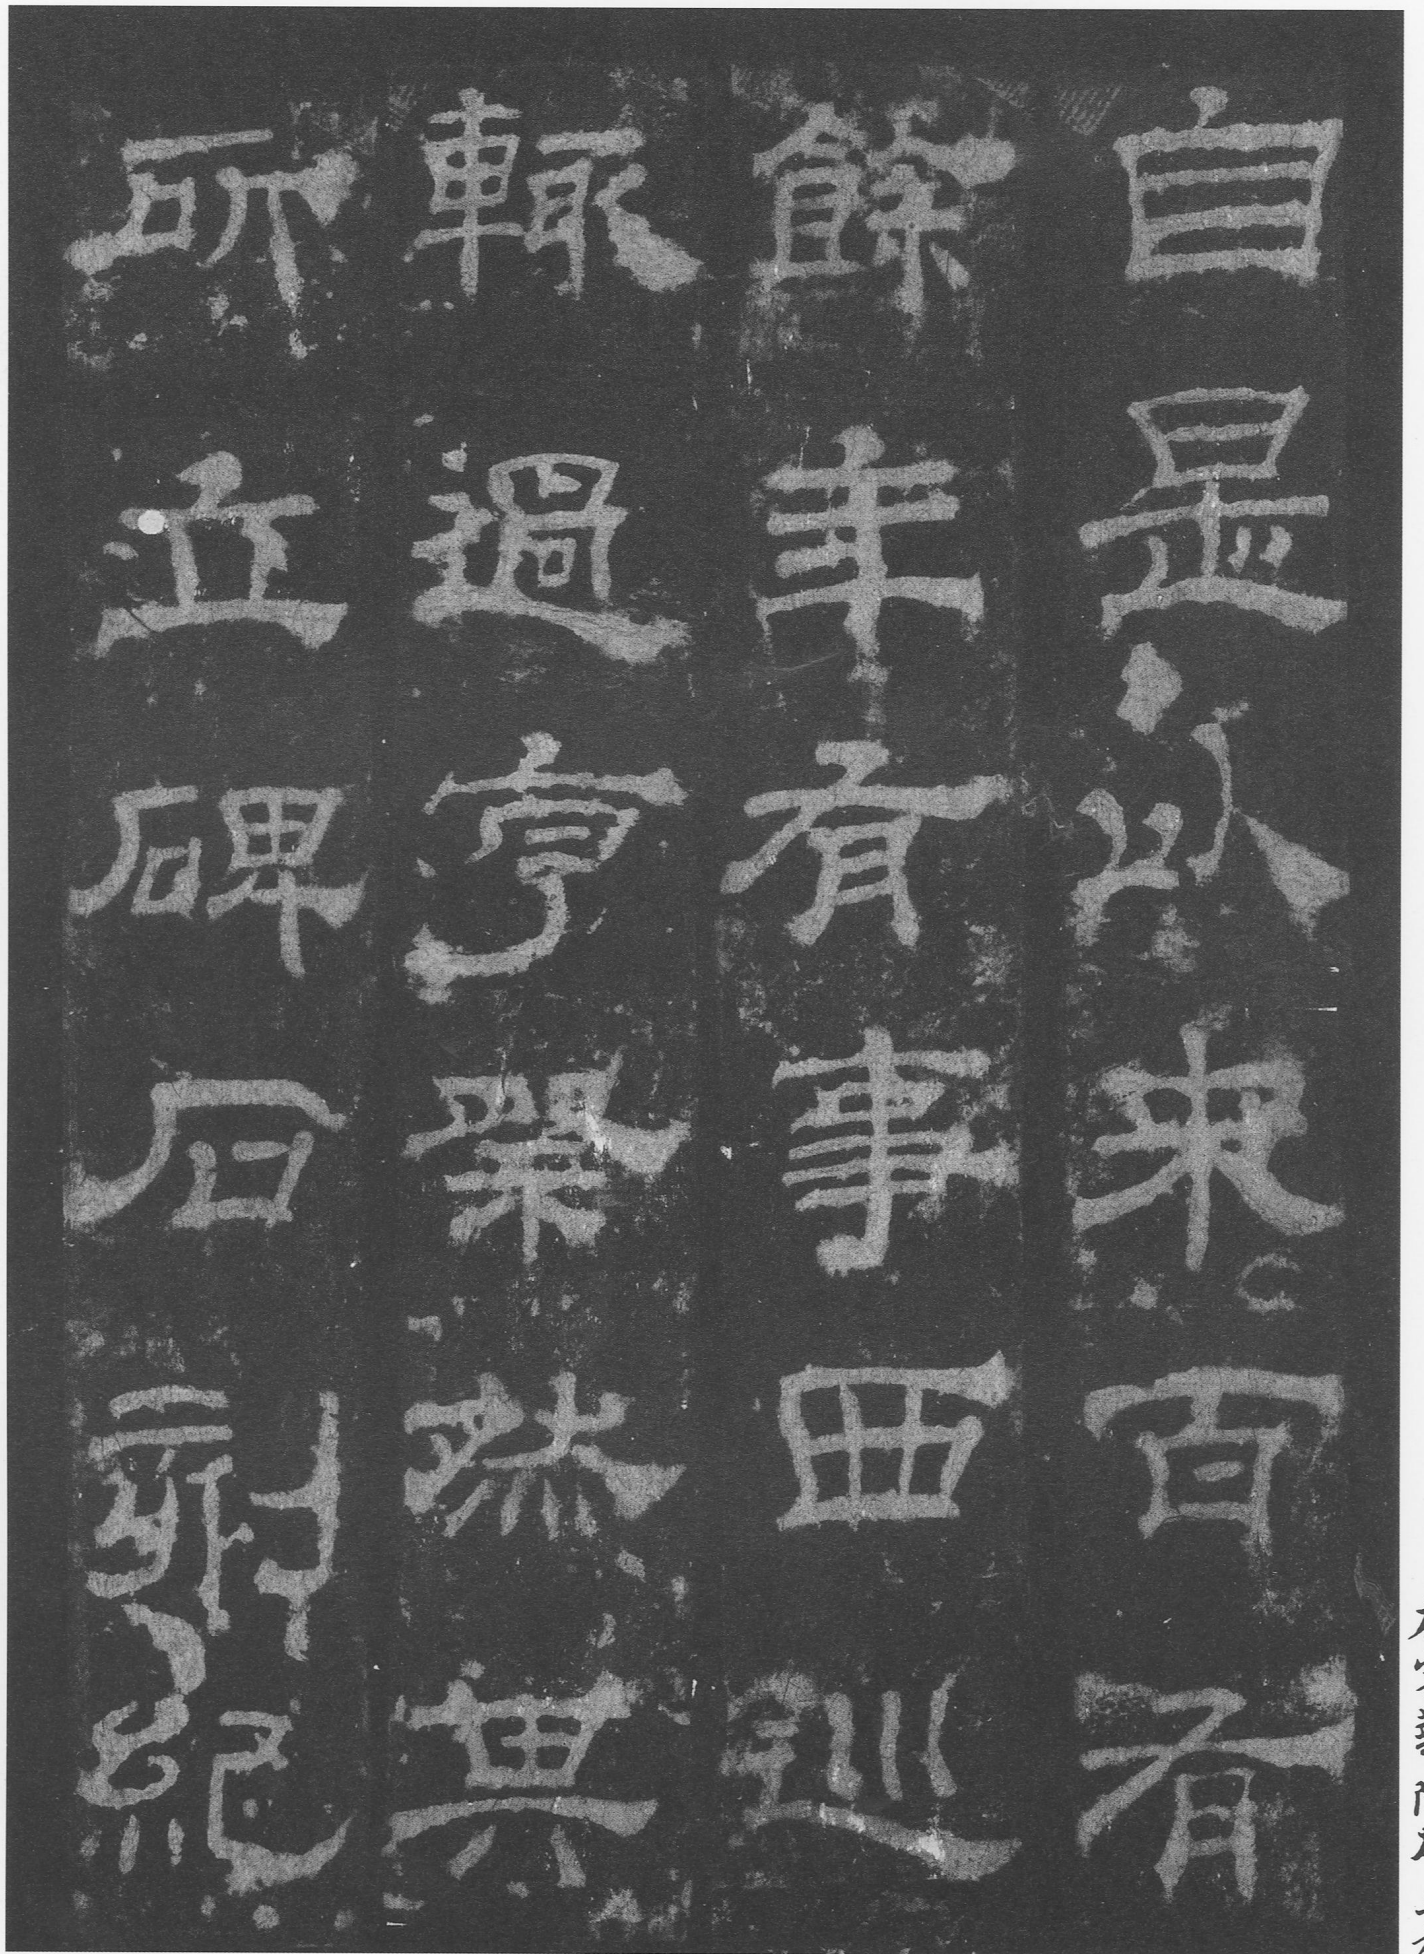 自是以來百有
餘年有事西巡
輒過亨祭然其
所立碑石刻紀